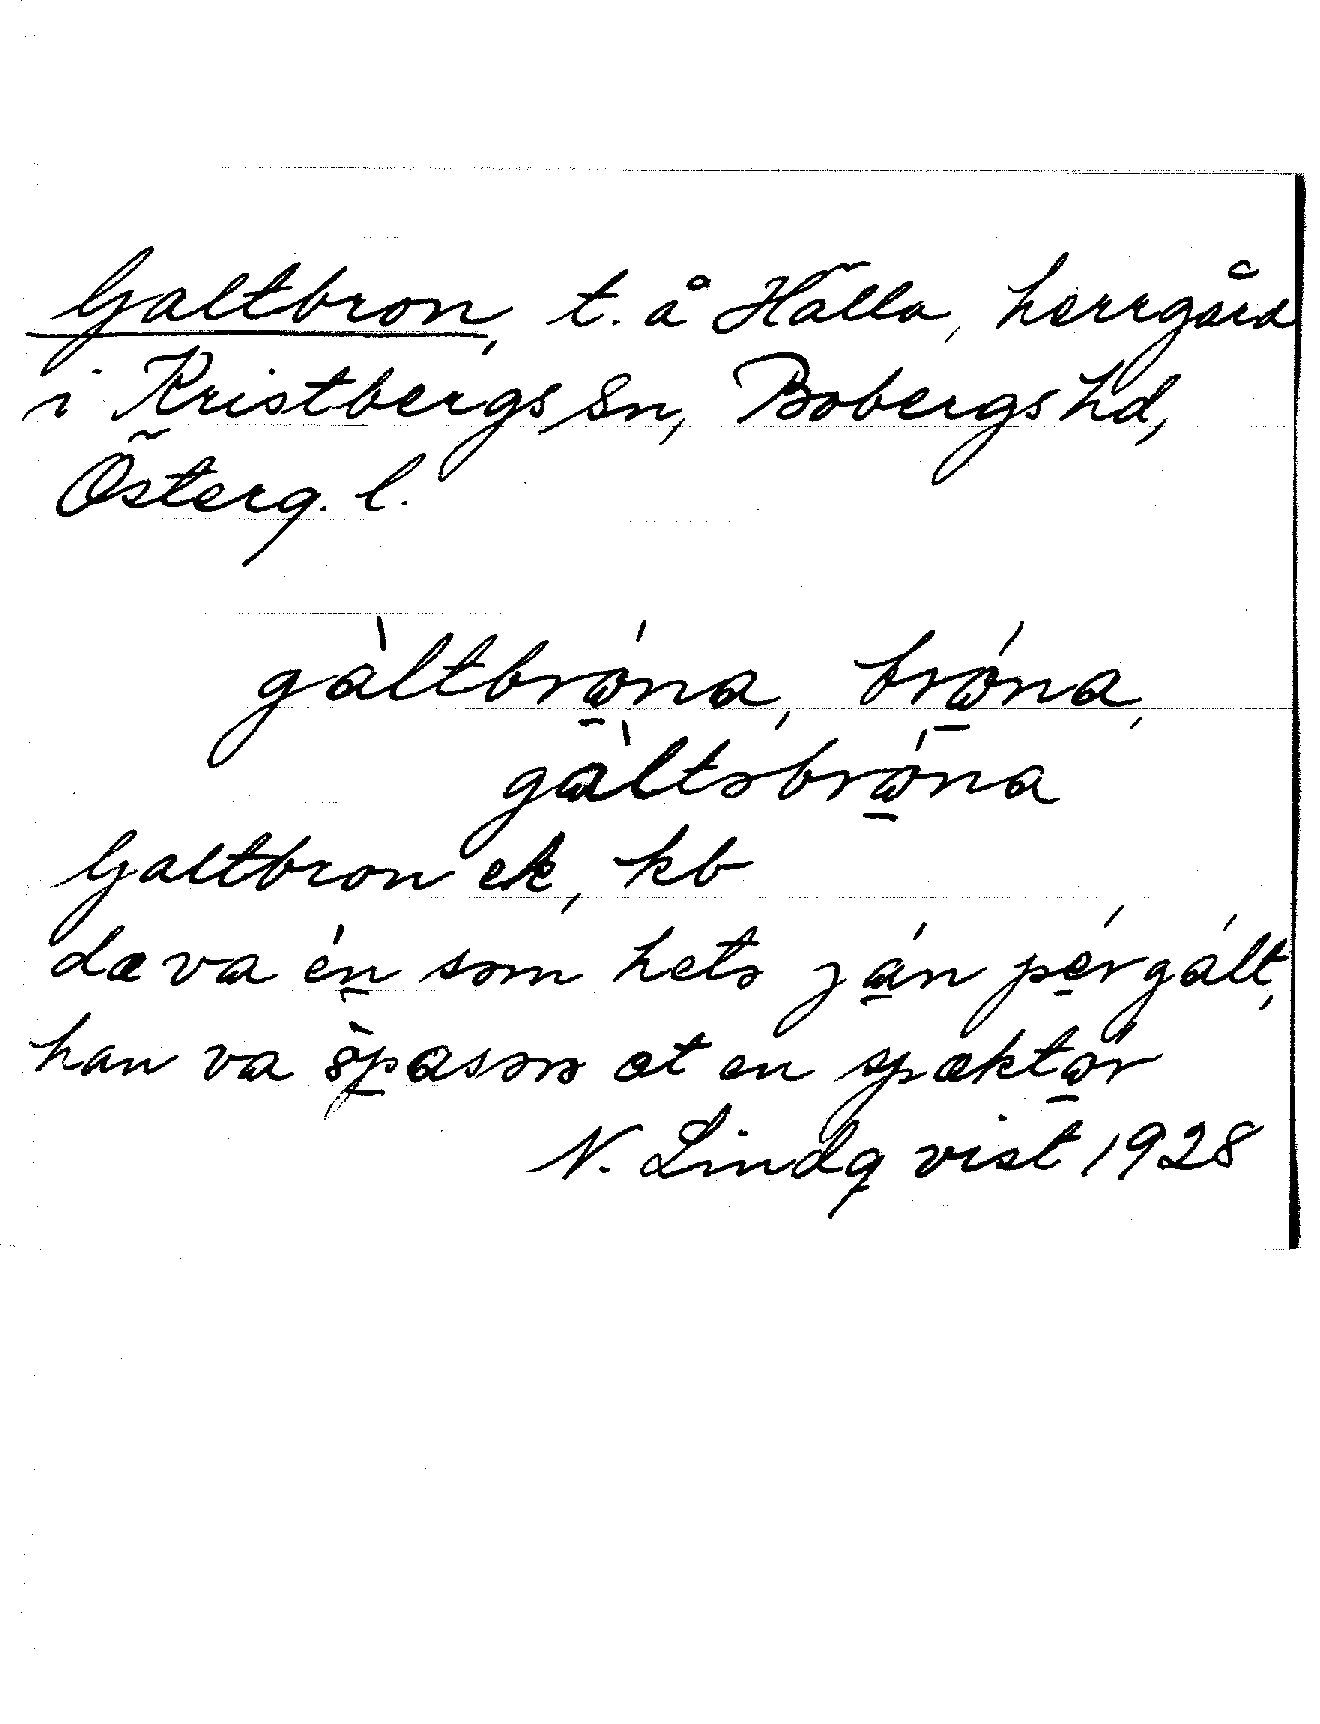 Galtbron, t. å Hälla, herrgård
i Kristbergs Sn, Bobergs hd,
Österg. l.
gàltbrώ̱na, brώ̱na,
gàltsbrώ̱na
Galtbron ek, kb
dæ va én som hets ján pér gált,
han va s̀pasən æt en spæktωr
N. Lindqvist 1928